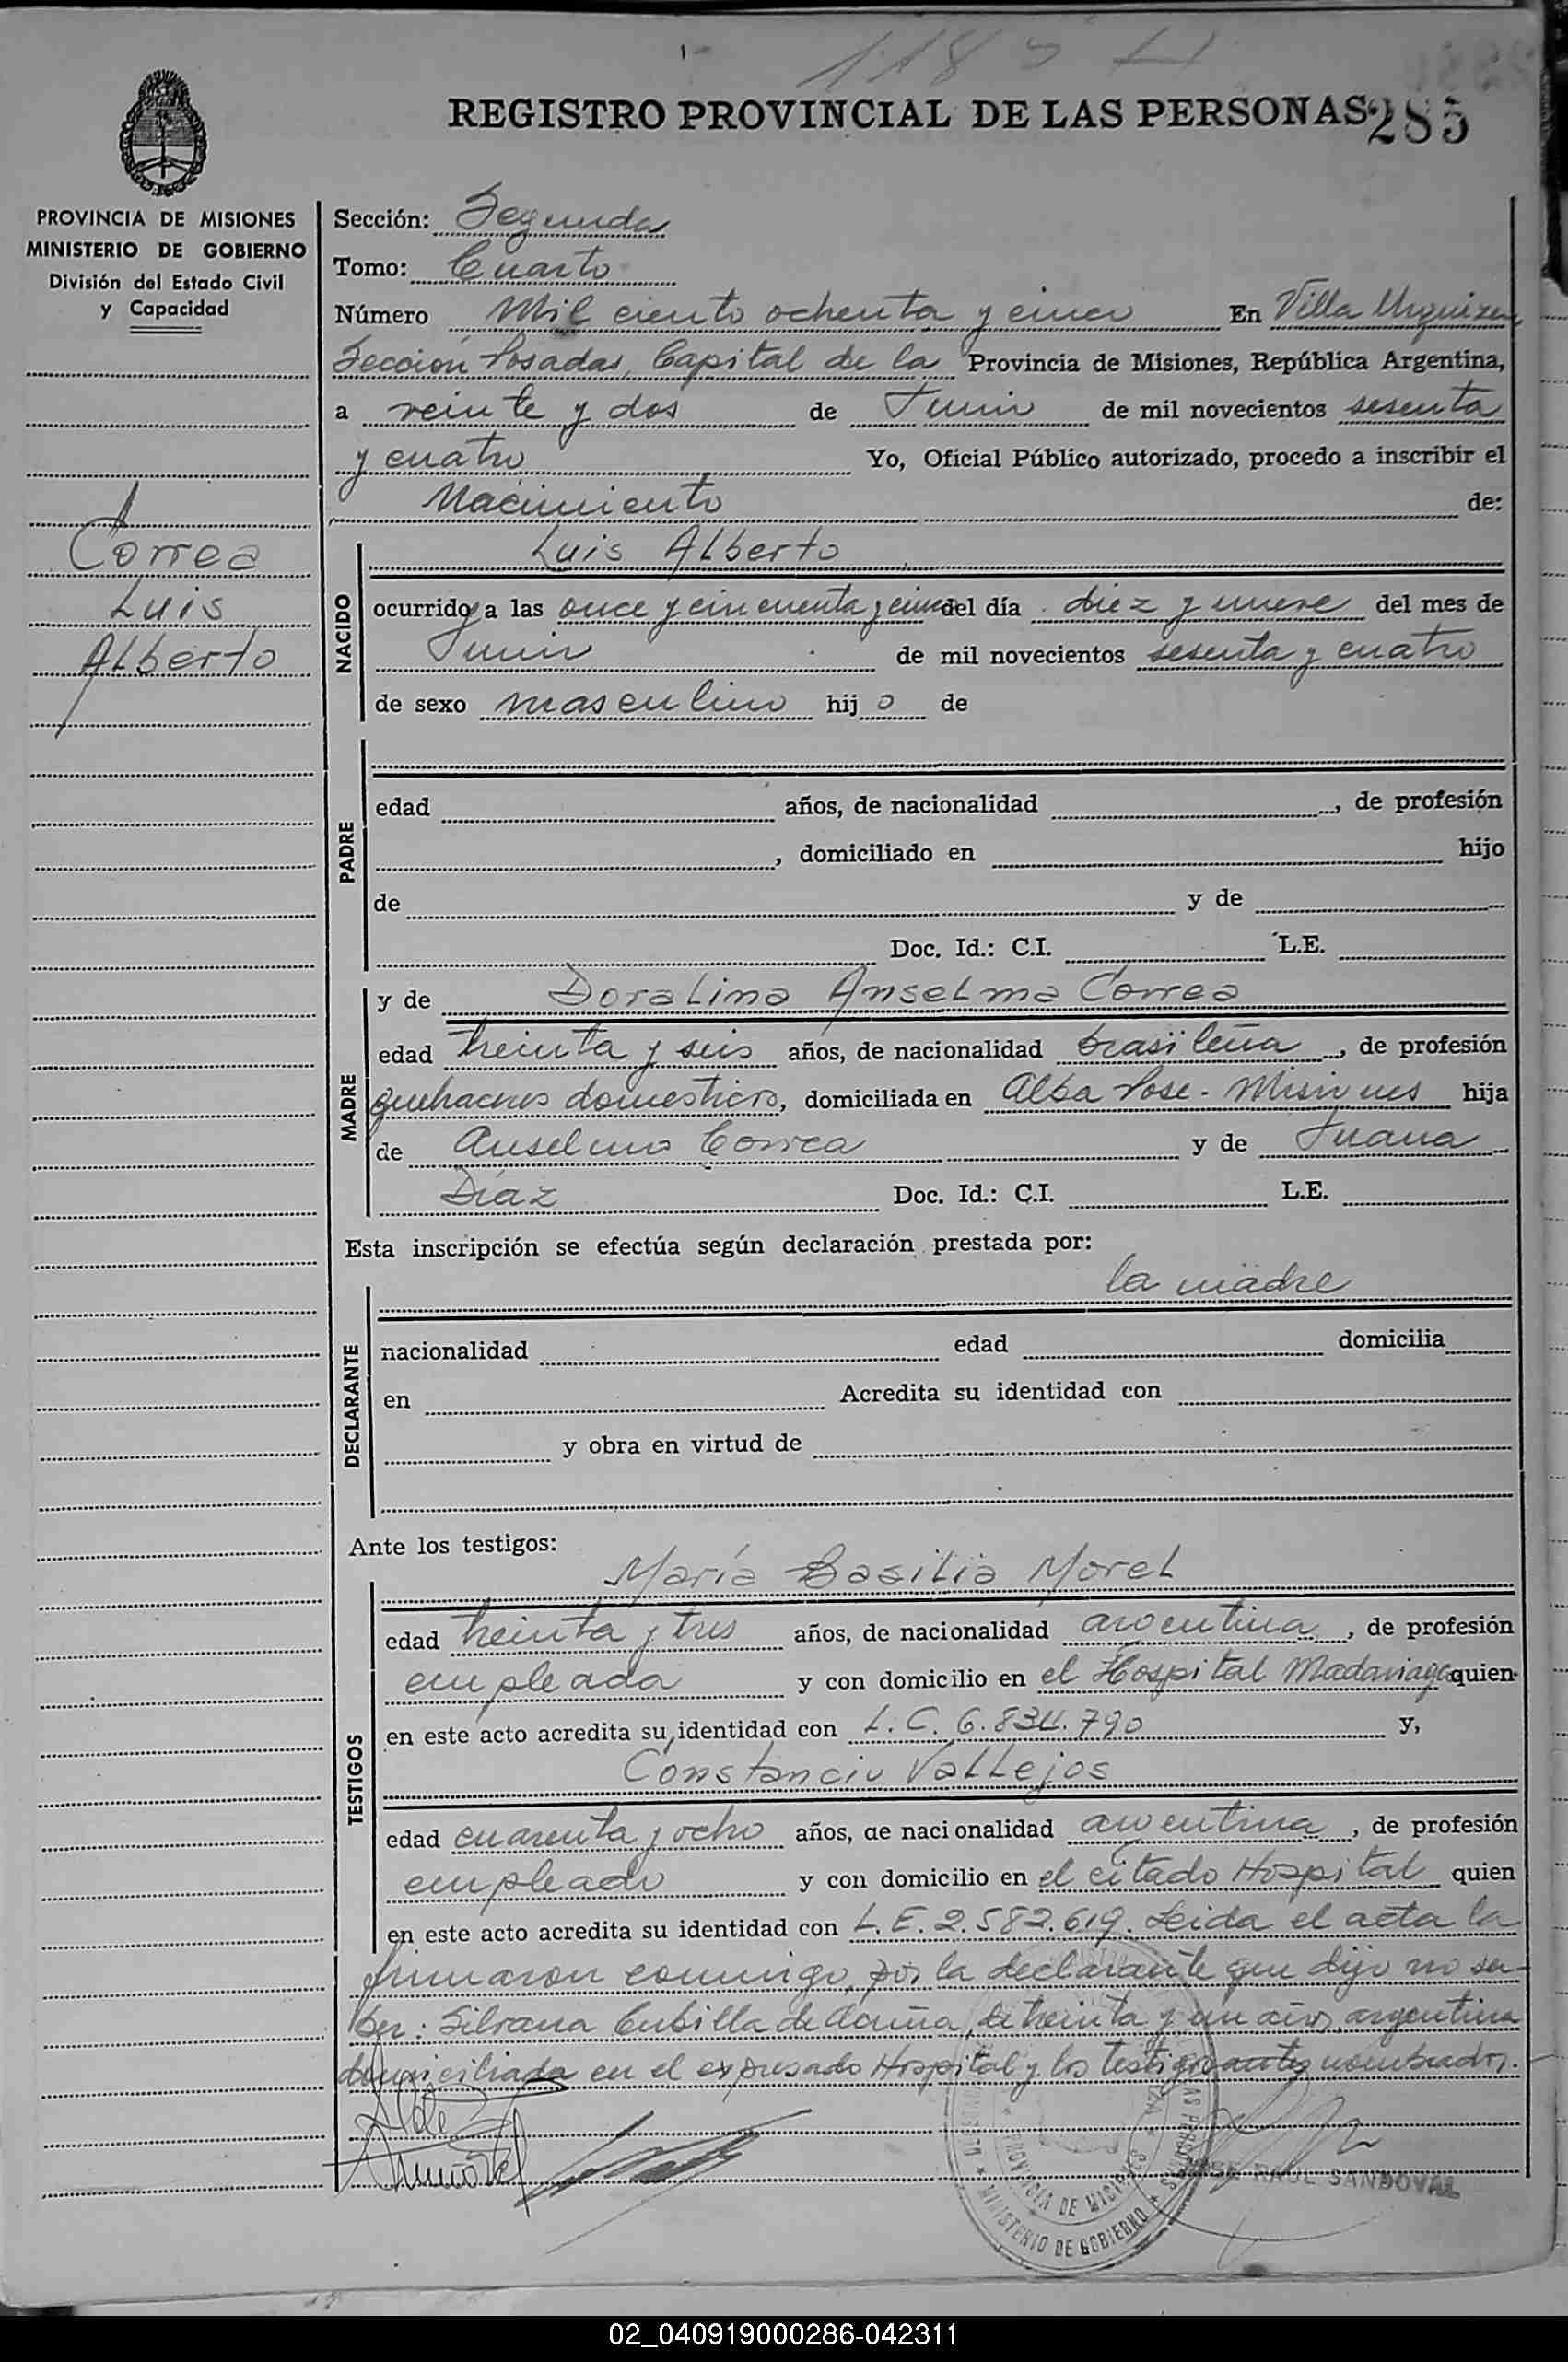 REGISTRO PROVINCIAL DE LAS PERSONAS
285
PROVINCIA DE MISIONES
MINISTERIO DE GOBIERNO
División del Estado Civil
y Capacidad
Correa
Luis
Alberto
Sección: Segunda
Tomo: Cuarto
Número Mil ciento ochenta y cinco En Villa Urquiza,
Sección Posadas, Capital de la Provincia de Misiones, República Argentina,
a veinte y dos de Junio de mil novecientos sesenta
y cuatro Yo, Oficial Público autorizado, procedo a inscribir el
Nacimiento de:
NACIDO
Luis Alberto
ocurrido a las once y cincuenta y cinco del día diez y nueve del mes de
Junio de mil novecientos sesenta y cuatro
de sexo masculino hijo de
PADRE
edad años, de nacionalidad , de profesión
, domiciliado en hijo
de y de
Doc. Id.: C.I. L.E.
MADRE
y de Doralina Anselma Correa
edad treinta y seis años, de nacionalidad brasileña, de profesión
quehaceres domesticos, domiciliada en Alba Posse - Misiones hija
de Anselmo Correa y de Juana
Díaz Doc. Id.: C.I. L.E.
Esta inscripción se efectúa según declaración prestada por:
DECLARANTE
la madre
nacionalidad edad domicilia
en Acredita su identidad con
y obra en virtud de
Ante los testigos:
TESTIGOS
María Basilia Morel
edad treinta y tres años, de nacionalidad argentina, de profesión
empleada y con domicilio en el Hospital Madariaga quien
en este acto acredita su identidad con L.C. 6.834.790 y,
Constancio Vallejos
edad cuarenta y ocho años, de nacionalidad argentina, de profesión
empleado y con domicilio en el citado Hospital quien
en este acto acredita su identidad con L.E. 2.582.619. Leida el acta la
firmaron conmigo, por la declarante que dijo no sa-
ber: Silvana Cubilla de de treinta y un años, argentina
domiciliada en el expresado Hospital y los testigos antes nombrados.
MINISTERIO DE GOBIERNO
PROVINCIA DE MISIONES
JOSE RAUL SANDOVAL
02_040919000286-042311